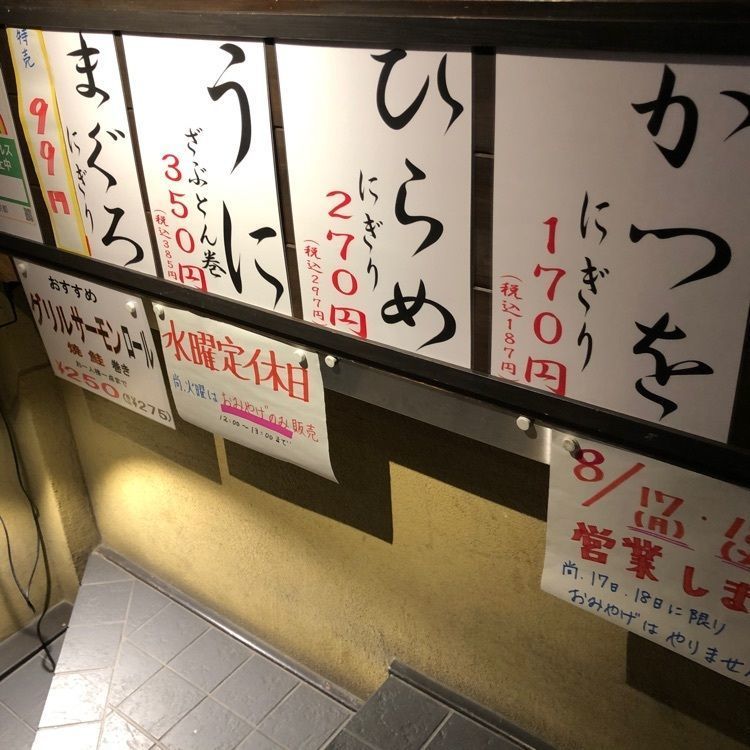 かつを
にぎり
170円
(税込187円)
ひらめ
にぎり
270円
(税込297円)
うに
ざぶとん巻
350円
(税込385円)
まぐろ
にぎり
特売
99円
おすすめ
グリルサーモンロール
焼鮭巻き
お一人様一点まで
¥250(税込¥275)
水曜定休日
尚、火曜はおみやげのみ販売
12:00〜18:00まで
8/17(月)・1
営業しま
尚、17日、18日に限り
おみやげはやりません